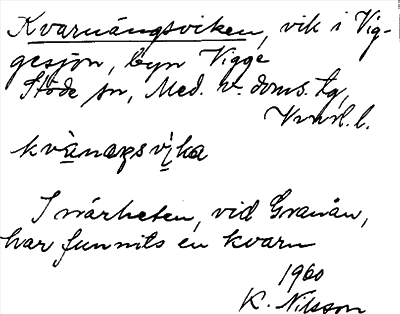 Kvarnängsviken, vik i Vig-
gesjön, byn Vigge
Stöde sn, Med. v. doms. tg,
Vnrl. l.
I närheten, vid Granån,
har funnits en kvarn
1960
K. Nilsson